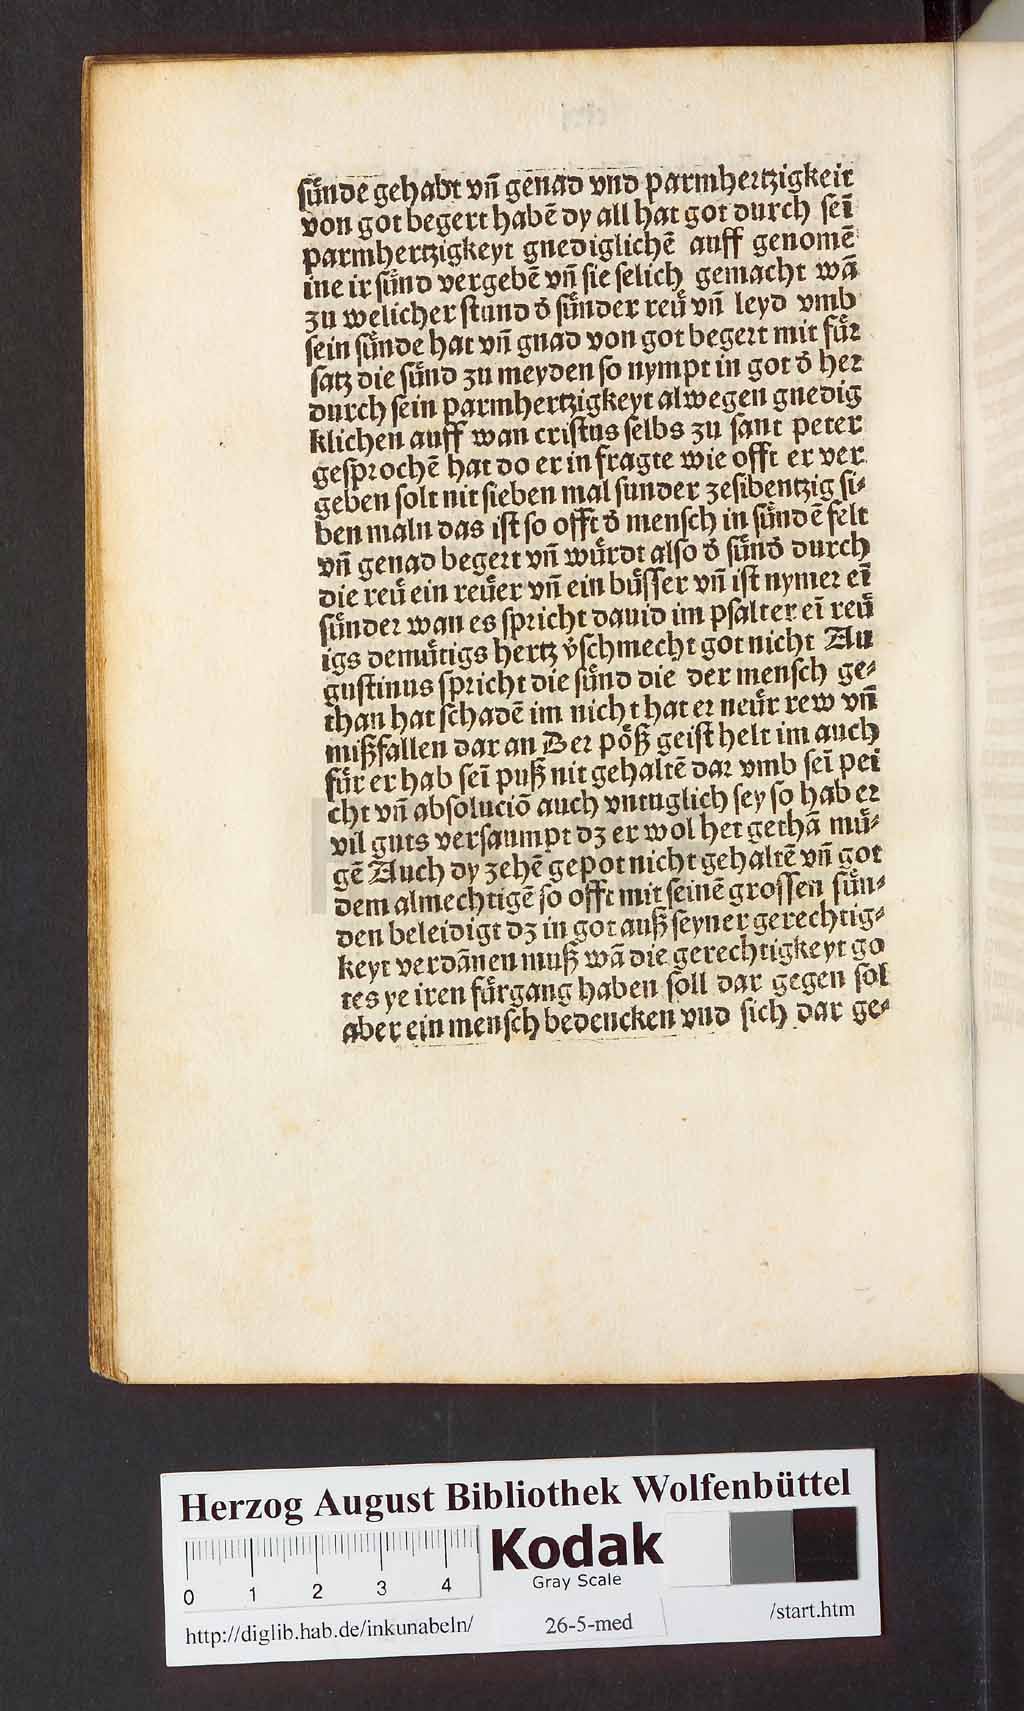 suͤnde gehabt vñ genad vnd parmhertzigkeit
von got begert habẽ dy all hat got durch seĩ
parmhertzigkeyt gnediglichẽ auff genomẽ
ine ir suͤnd vergebẽ vñ sie selich gemacht wã
zu welicher stund d̕ suͤnder reuͤ vñ leyd vmb
sein suͤnde hat vñ gnad von got begert mit fuͤr
satz die suͤnd zu meyden so nympt in got d̕ her
durch sein parmhertzigkeyt alwegen gnedig
klichen auff wan cristus selbs zu sant peter
gesprochẽ hat do er in fragte wie offt er ver
geben solt nit sieben mal sunder zesibentzig si⸗
ben maln das ist so offt d̕ mensch in suͤndẽ felt
vñ genad begert vñ wuͤrdt also d̕ suͤnd̕ durch
die reuͤ ein reuͤer vñ ein buͤsser vñ ist nymer eĩ
suͤnder wan es spricht dauid im psalter eĩ reuͤ
igs demuͤtigs hertz v̕schmecht got nicht Au
gustinus spricht die suͤnd die der mensch ge⸗
than hat schadẽ im nicht hat er neuͤr rew vñ
mißfallen dar an Der poͤß geist helt im auch
fuͤr er hab seĩ puß nit gehaltẽ dar vmb seĩ pei
cht vñ absoluciõ auch vntuglich sey so hab er
vil guts versaumpt dz er wol het gethã muͤ⸗
gẽ Auch dy zehẽ gepot nicht gehaltẽ vñ got
dem almechtigẽ so offt mit seinẽ grossen suͤn⸗
den beleidigt dz in got auß seyner gerechtig⸗
keyt verdãnen muß wã die gerechtigkeyt go
tes ye iren fuͤrgang haben soll dar gegen sol
aber ein mensch bedencken vnd sich dar ge⸗
Herzog August Bibliothek Wolfenbüttel
Kodak
Gray Scale
0 1 2 3 4
http://diglib.hab.de/inkunabeln/ 26-5-med /start.htm